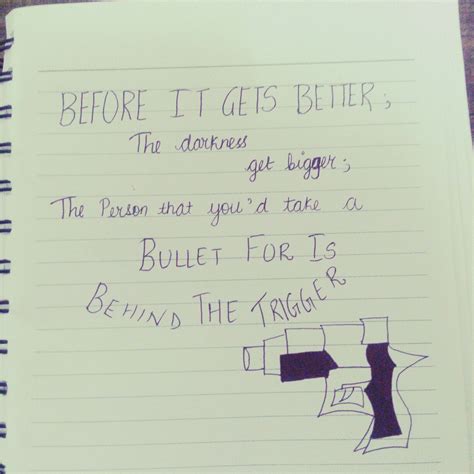 BEFORE IT GETS BETTER;
The darkness
get bigger;
The Person that you'd take a
BULLET FOR IS
BEHIND THE TRIGGER